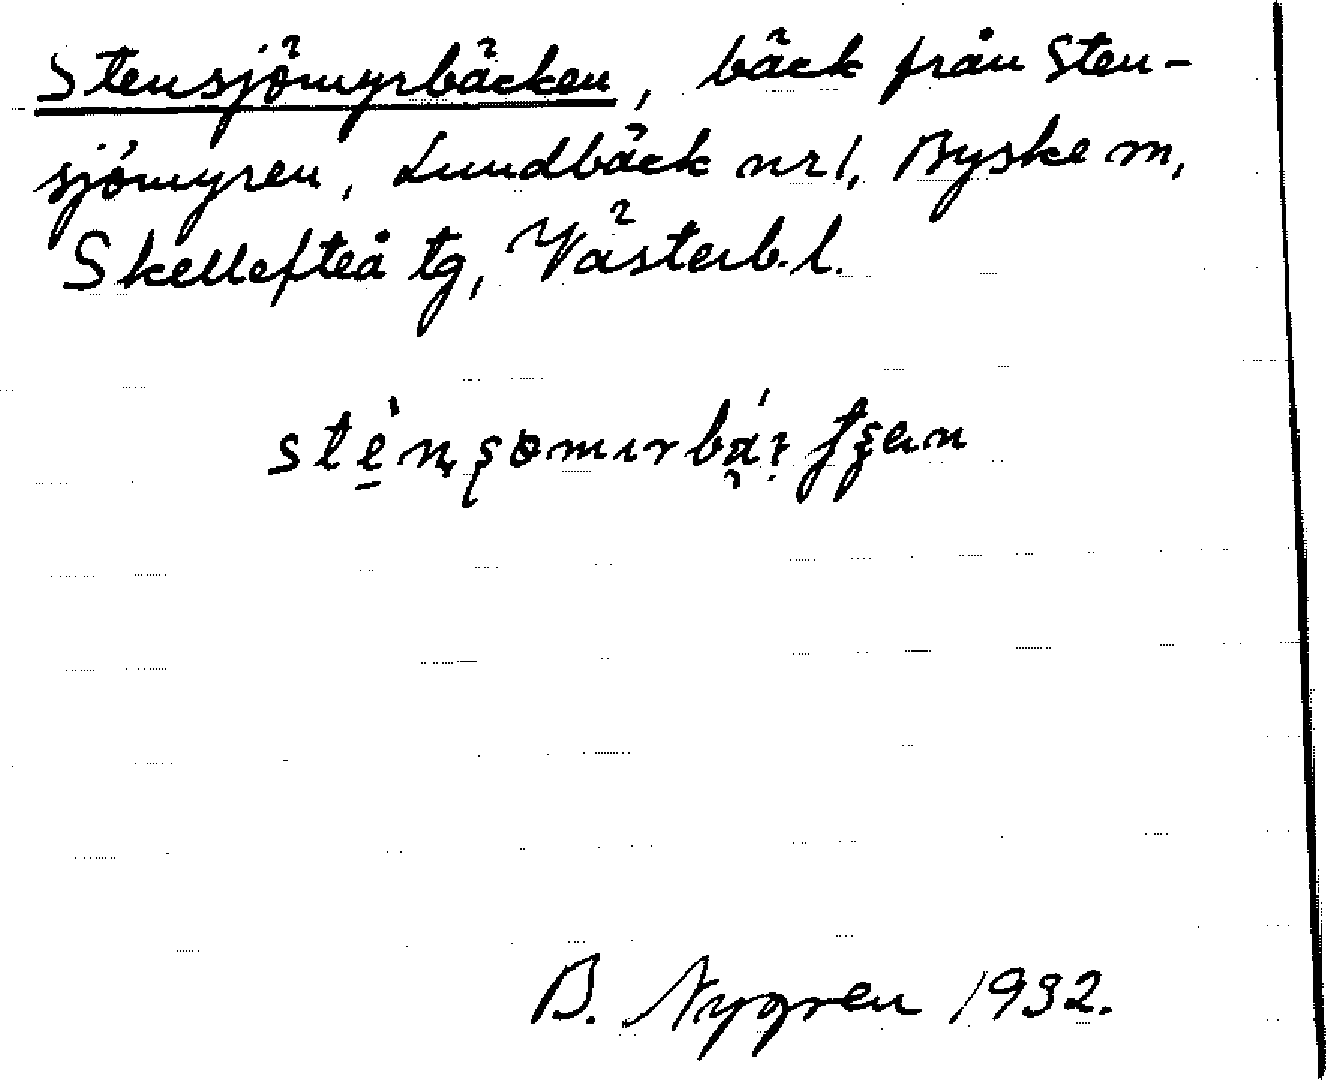 Stensjömyrbäcken, bäck från Sten-
sjömyren, Lundbäck nr 1, Byske sn,
Skellefteå tg, Västerb. l.
B. Nygren 1932.